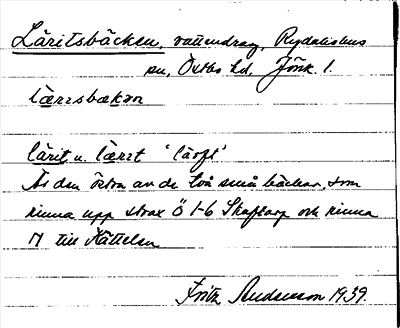 Läritsbäcken, vattendrag, Rydaholms
sn, Östbo hd, Jönk. l.
lærrsbækən
lärit u. lærrt 'lärft'
Är den östra av de två små bäckar, som
rinna upp strax Ö 1-6 Skaftarp och rinna
N till Hättelen
Fritz Andersson 1939.